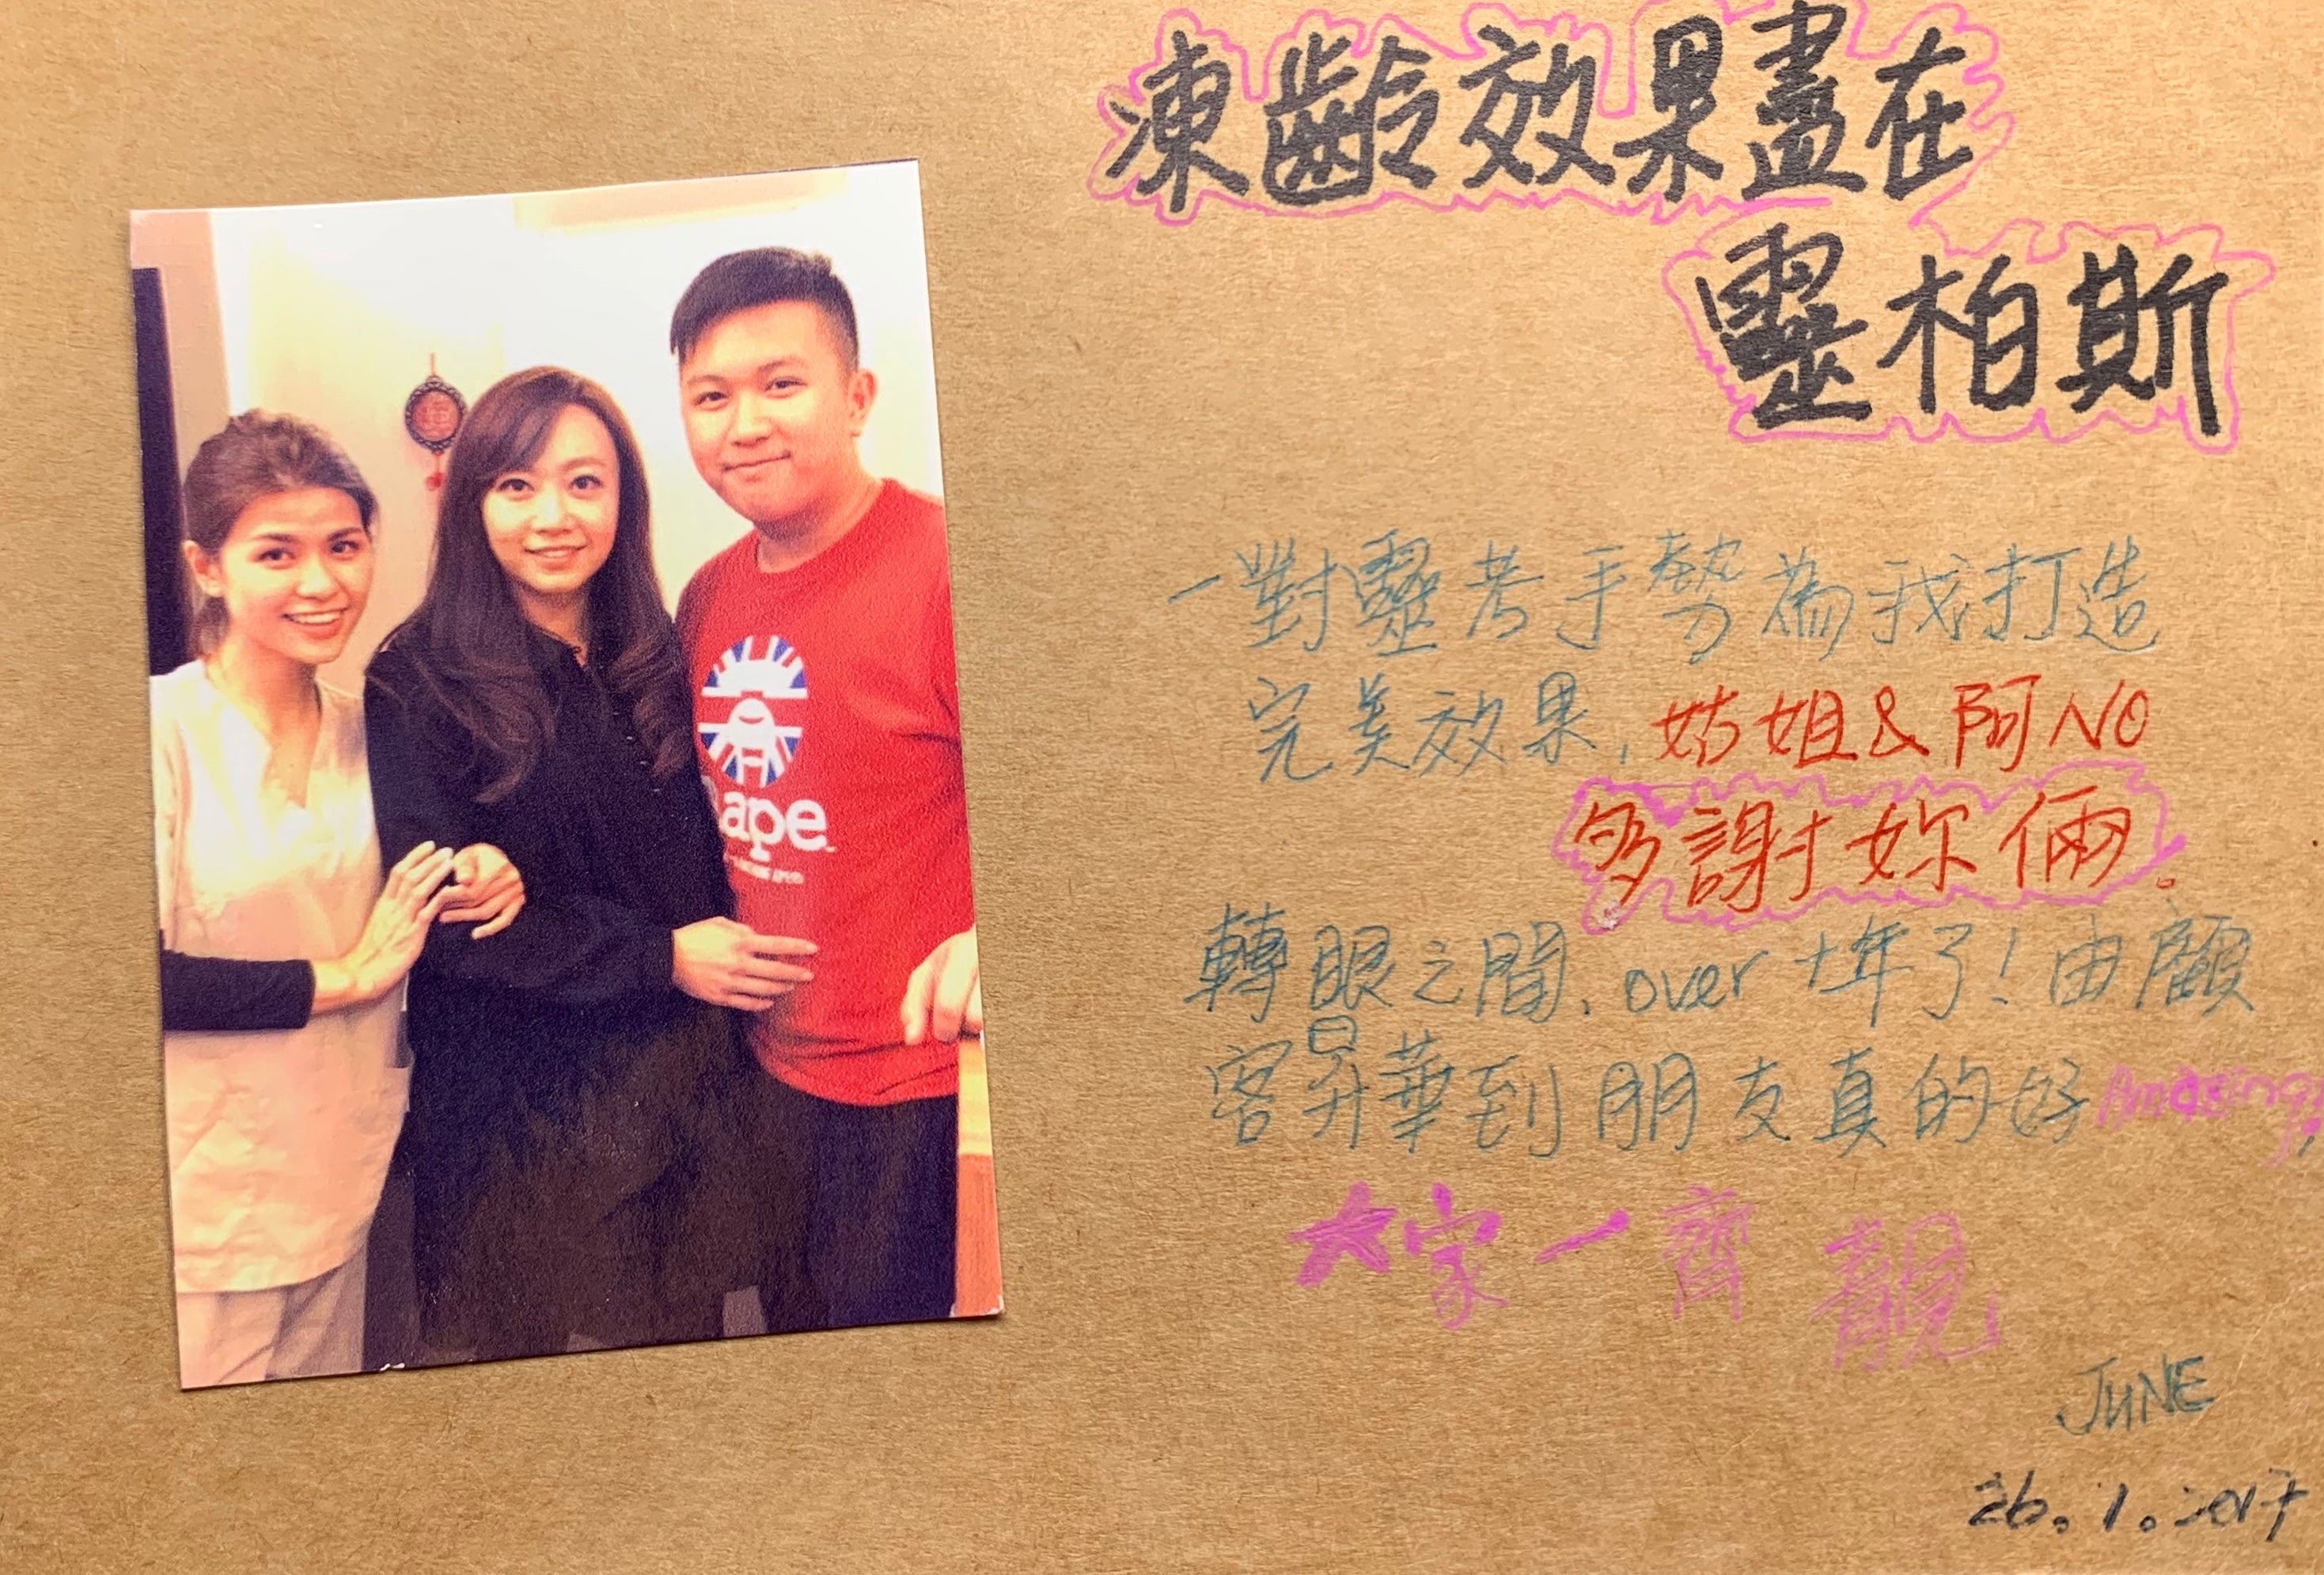 凍齡效果盡在
靈柏斯
一對靈考手勢為我打造
完美效果，姑姐&阿NO
多謝妳倆！
轉眼之間，over 十年了！由顧
客昇華到朋友真的好Amazing,
大家一齊靚
JUNE
26.1.2017
ape